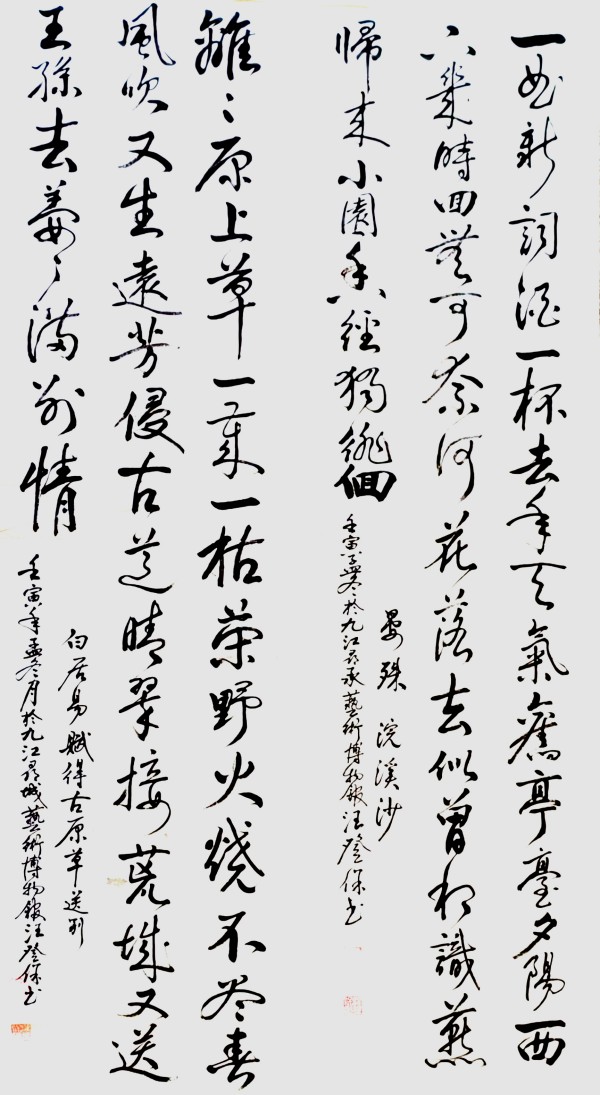 一曲新詞酒一杯去年天氣舊亭臺夕陽西
下幾時回無可奈何花落去似曾相識燕
歸來小園香徑獨徘徊
晏殊 浣溪沙
壬寅孟冬於九江藝術博物館汪登保書
離々原上草一歲一枯榮野火燒不盡春
風吹又生遠芳侵古道晴翠接荒城又送
王孫去萋々滿別情
白居易賦得古原草送別
壬寅年孟冬月於九江藝術博物館汪登保書